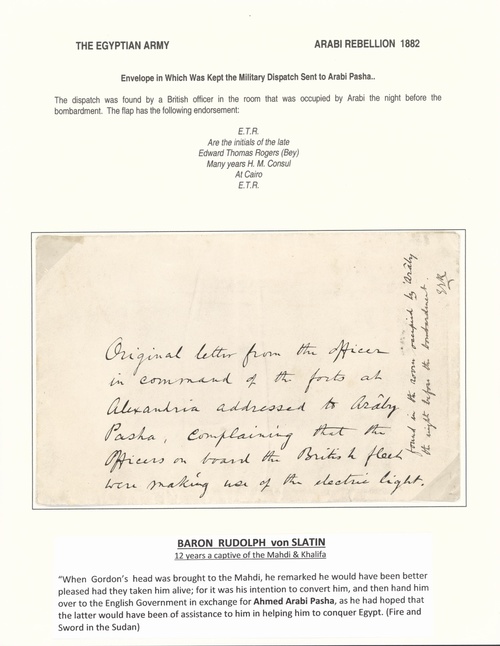 THE EGYPTIAN ARMY
ARABI REBELLION 1882
Envelope in Which Was Kept the Military Dispatch Sent to Arabi Pasha..
The dispatch was found by a British officer in the room that was occupied by Arabi the night before the
bombardment. The flap has the following endorsement:
E.T.R.
Are the initials of the late
Edward Thomas Rogers (Bey)
Many years H. M. Consul
At Cairo
E.T.R.
Original letter from the officer
in command of the forts at
Alexandria addressed to Arâby
Pasha, complaining that the
Officers on board the British fleet
were making use of the electric light.
found in the room occupied by Arâby
the night before the bombardment.
ETR
BARON RUDOLPH von SLATIN
12 years a captive of the Mahdi & Khalifa
"When Gordon's head was brought to the Mahdi, he remarked he would have been better
pleased had they taken him alive; for it was his intention to convert him, and then hand him
over to the English Government in exchange for Ahmed Arabi Pasha, as he had hoped that
the latter would have been of assistance to him in helping him to conquer Egypt. (Fire and
Sword in the Sudan)